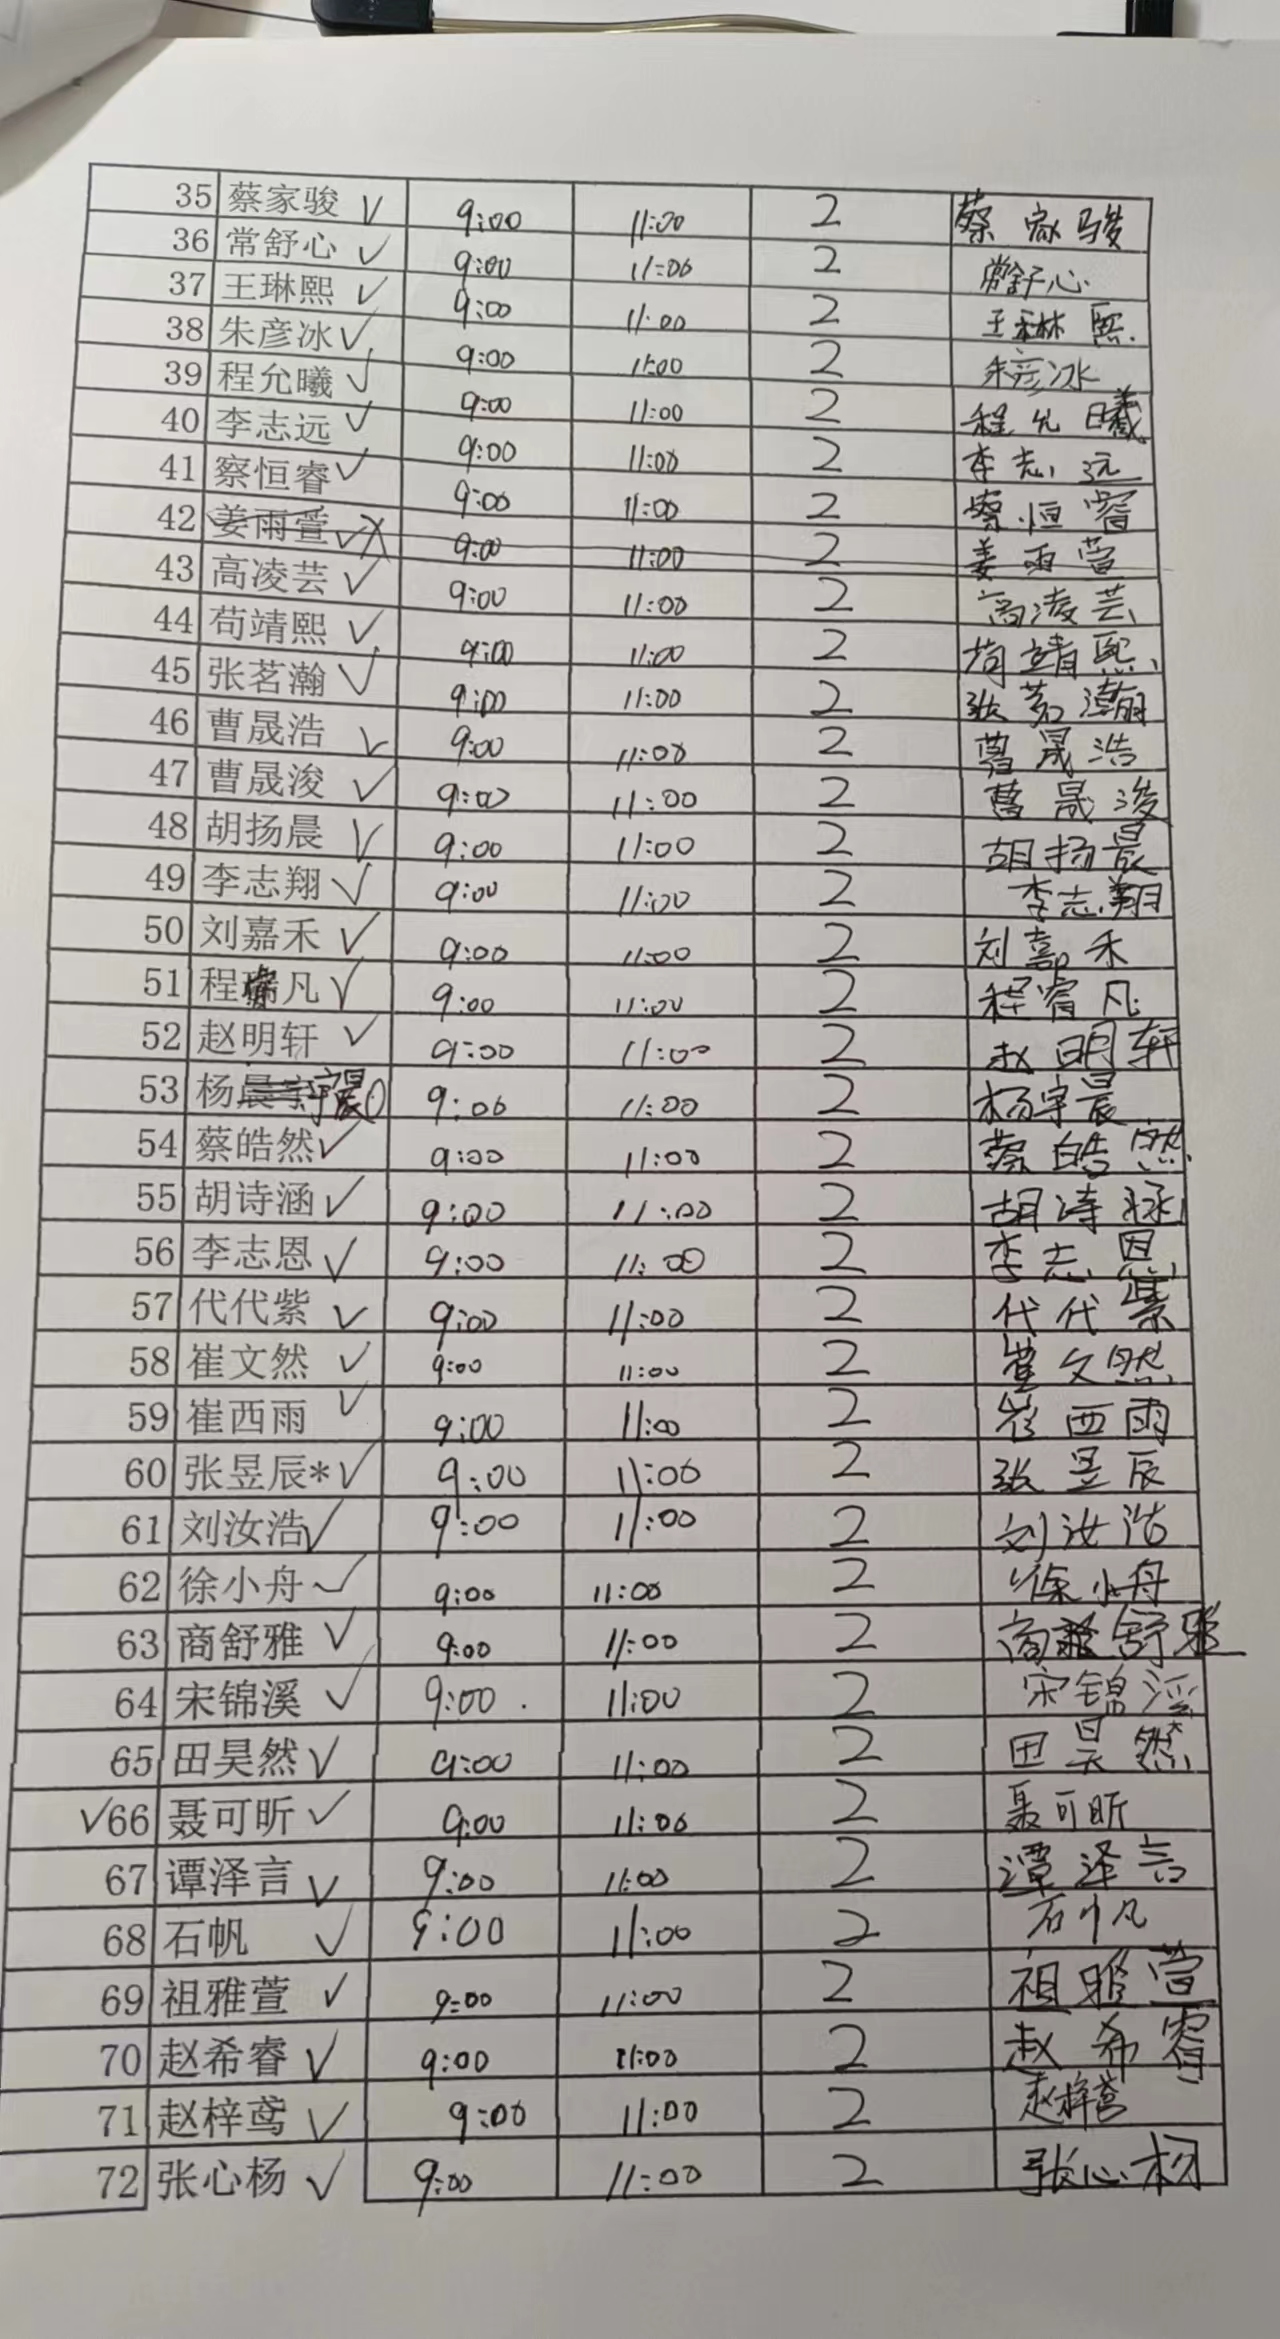 35 蔡家骏 √ 9:00 11:00 2 蔡家骏
36 常舒心 √ 9:00 11:00 2 常舒心
37 王琳熙 √ 9:00 11:00 2 王琳熙
38 朱彦冰 √ 9:00 11:00 2 朱彦冰
39 程允曦 √ 9:00 11:00 2 程允曦
40 李志远 √ 9:00 11:00 2 李志远
41 蔡恒睿 √ 9:00 11:00 2 蔡恒睿
42 姜雨萱 √ 9:00 11:00 2 姜雨萱
43 高凌芸 √ 9:00 11:00 2 高凌芸
44 苟靖熙 √ 9:00 11:00 2 苟靖熙
45 张茗瀚 √ 9:00 11:00 2 张茗瀚
46 曹晟浩 √ 9:00 11:00 2 曹晟浩
47 曹晟浚 √ 9:00 11:00 2 曹晟浚
48 胡扬晨 √ 9:00 11:00 2 胡扬晨
49 李志翔 √ 9:00 11:00 2 李志翔
50 刘嘉禾 √ 9:00 11:00 2 刘嘉禾
51 程凡 √ 9:00 11:00 2 程睿凡
52 赵明轩 √ 9:00 11:00 2 赵明轩
53 杨晨宇宇晨 9:00 11:00 2 杨宇晨
54 蔡皓然 √ 9:00 11:00 2 蔡皓然
55 胡诗涵 √ 9:00 11:00 2 胡诗涵
56 李志恩 √ 9:00 11:00 2 李志恩
57 代代紫 √ 9:00 11:00 2 代代紫
58 崔文然 √ 9:00 11:00 2 崔文然
59 崔西雨 √ 9:00 11:00 2 崔西雨
60 张昱辰* √ 9:00 11:00 2 张昱辰
61 刘汝浩 √ 9:00 11:00 2 刘汝浩
62 徐小舟 √ 9:00 11:00 2 徐小舟
63 商舒雅 √ 9:00 11:00 2 商舒雅
64 宋锦溪 √ 9:00 11:00 2 宋锦溪
65 田昊然 √ 9:00 11:00 2 田昊然
√66 聂可昕 √ 9:00 11:00 2 聂可昕
67 谭泽言 √ 9:00 11:00 2 谭泽言
68 石帆 √ 9:00 11:00 2 石帆
69 祖雅萱 √ 9:00 11:00 2 祖雅萱
70 赵希睿 √ 9:00 11:00 2 赵希睿
71 赵梓鸢 √ 9:00 11:00 2 赵梓鸢
72 张心杨 √ 9:00 11:00 2 张心杨